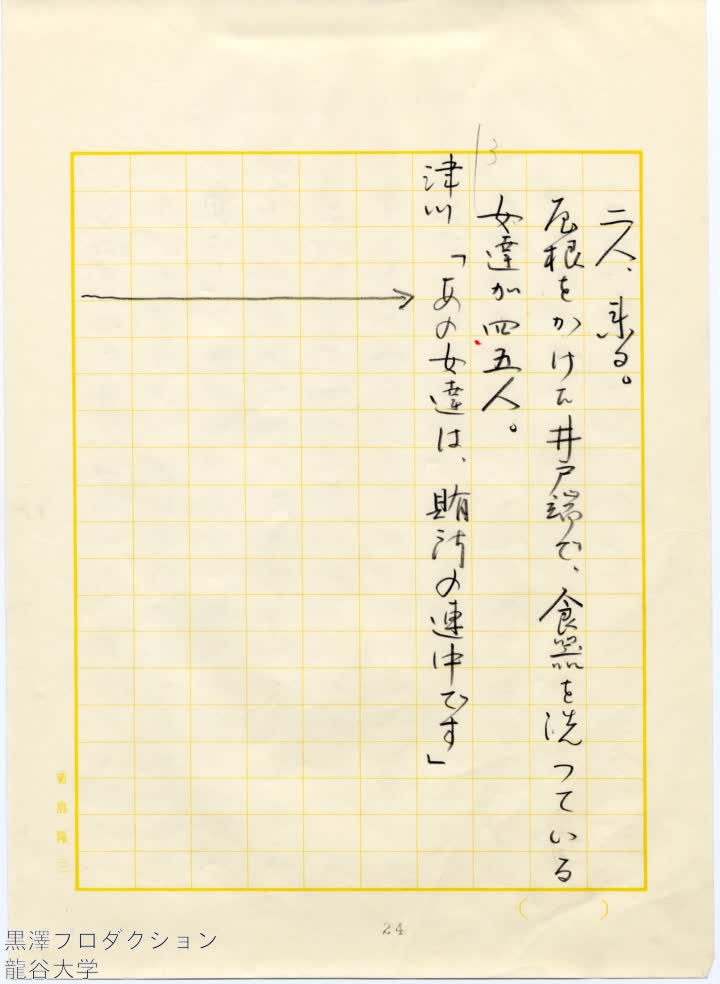 二人、来る。
屋根をかけた井戸端で、食器を洗つている
女達が四五人。
津川「あの女達は、賄所の連中です」
13
菊島隆三
24
黒澤プロダクション
龍谷大学